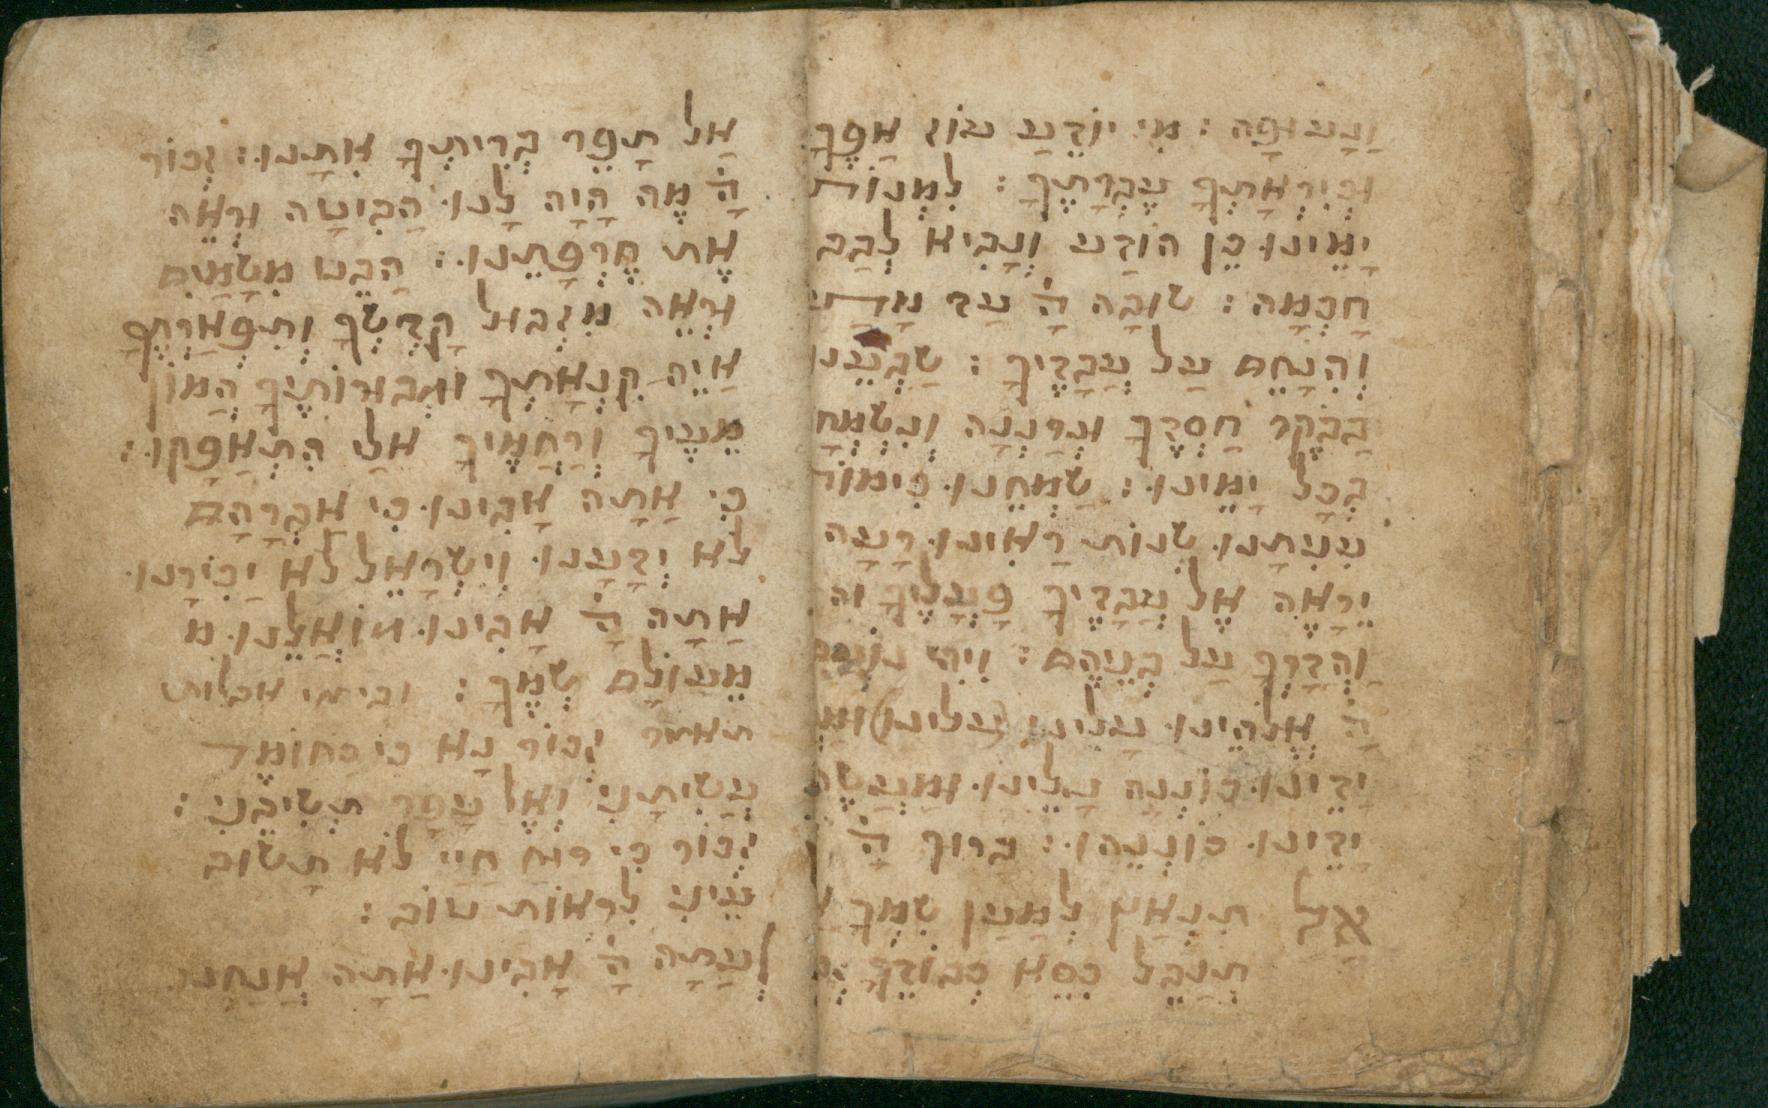 וַנָּעוּפָה׃ מִי יוֹדֵעַ עוֹז אַפֶּךָ
וּכְיִרְאָתְךָ עֶבְרָתֶךָ׃ לִמְנוֹת
יָמֵינוּ כֵּן הוֹדַע וְנָבִיא לְבַב
חָכְמָה׃ שׁוּבָה הָ עַד מָתַי
וְהִנָּחֵם עַל עֲבָדֶיךָ׃ שַׂבְּעֵנוּ
בַבֹּקֶר חַסְדֶּךָ וּנְרַנְּנָה וְנִשְׂמְחָ
בְּכָל יָמֵינוּ׃ שַׂמְּחֵנוּ כִּימוֹת
עִנִּיתָנוּ שְׁנוֹת רָאִינוּ רָעָה
יֵרָאֶה אֶל עֲבָדֶיךָ פָּעֳלֶיךָ וה
וַהֲדָרְךָ עַל בְּנֵיהֶם׃ וִיהִי נוֹעַם
הָ אֱלֹהֵינוּ עָלֵינוּ (עלינו) ומע
יָדֵינוּ כּוֹנְנָה עָלֵינוּ וּמַעֲשֵׂה
יָדֵינוּ כּוֹנְנֵהוּ׃ בָּרוּךְ הָ
אַל תִּנְאַץ לְמַעַן שִׁמְךָ
תְּנַבֵּל כִּסֵּא כְבוֹדֶךָ
אַל תָּפֵר בְּרִיתְךָ אִתָּנוּ׃ זְכוֹר
הָ מֶה הָיָה לָנוּ הַבִּיטָה וּרְאֵה
אֶת חֶרְפָּתֵנוּ׃ הַבֵּט מִשָּׁמַיִם
וּרְאֵה מִזְּבוּל קָדְשְׁךָ וְתִפְאַרְתֶּךָ
אַיֵּה קִנְאָתְךָ וּגְבוּרוֹתֶיךָ הֲמוֹן
מֵעֶיךָ וְרַחֲמֶיךָ אֵלַי הִתְאַפָּקוּ׃
כִּי אַתָּה אָבִינוּ כִּי אַבְרָהָם
לֹא יְדָעָנוּ וְיִשְׂרָאֵל לֹא יַכִּירָנוּ
אַתָּה הָ אָבִינוּ גּוֹאֲלֵנוּ מ
מֵעוֹלָם שְׁמֶךָ׃ ובימי אבלות
תאמר זְכוֹר נָא כִּי כַחוֹמֶר
עֲשִׂיתָנִי וְאֶל עָפָר תְּשִׁיבֵנִי׃
זְכוֹר כִּי רוּחַ חַיַּי לֹא תָשׁוּב
עֵינִי לִרְאוֹת טוֹב׃
וְעַתָּה הָ אָבִינוּ אַתָּה אֲנַחְנוּ